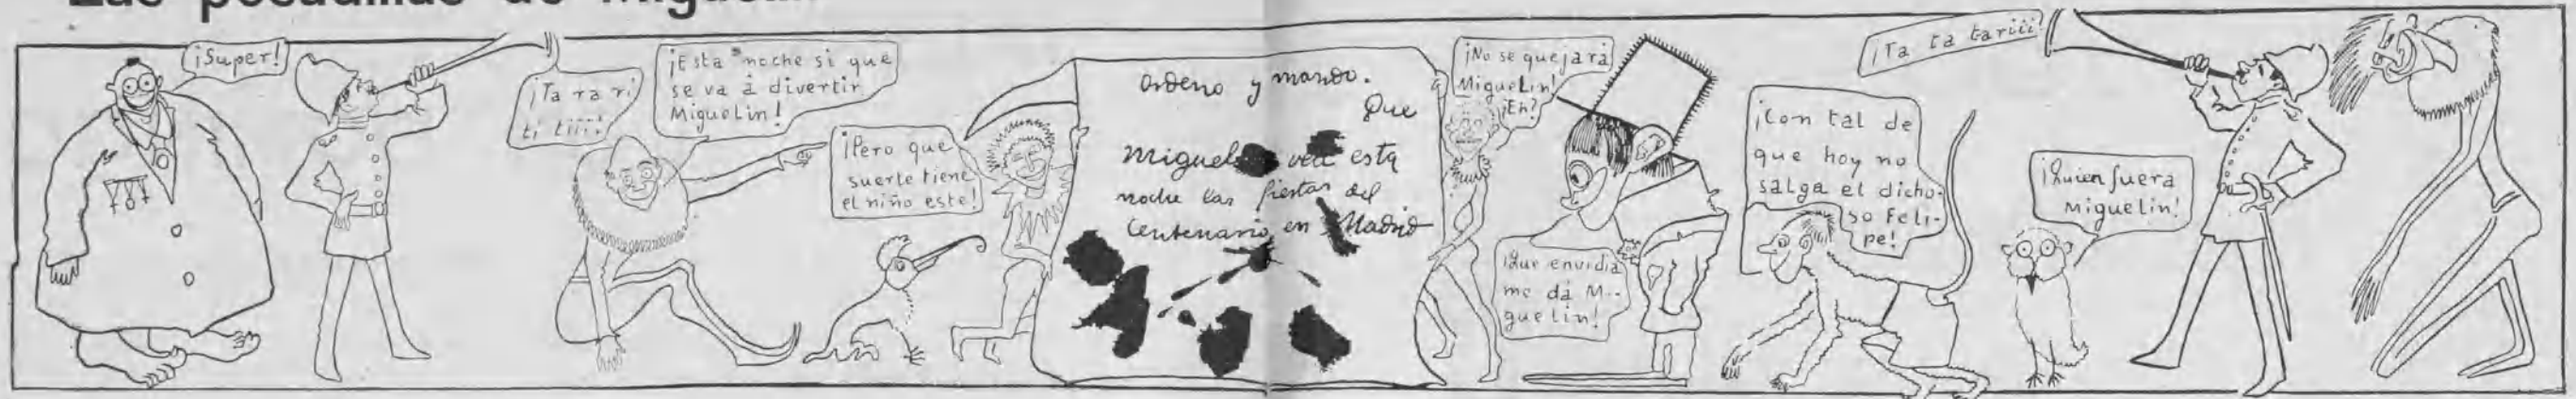 Las pesadillas de Miguelín
¡Super!
¡Ta ra ri
ti tiii!
¡Esta noche si que
se va á divertir
Miguelin!
¡Pero que
suerte tiene
el niño este!
Ordeno y mando.
Que
Miguel vea esta
noche las fiestas del
Centenario en Madrid
¡No se quejará
Miguelin!
¡Eh?
¡Que envidia
me dá M..
guelin!
¡Con tal de
que hoy no
salga el dicho-
so Feli-
pe!
¡Quien fuera
Miguelin!
¡Ta ta tariii!